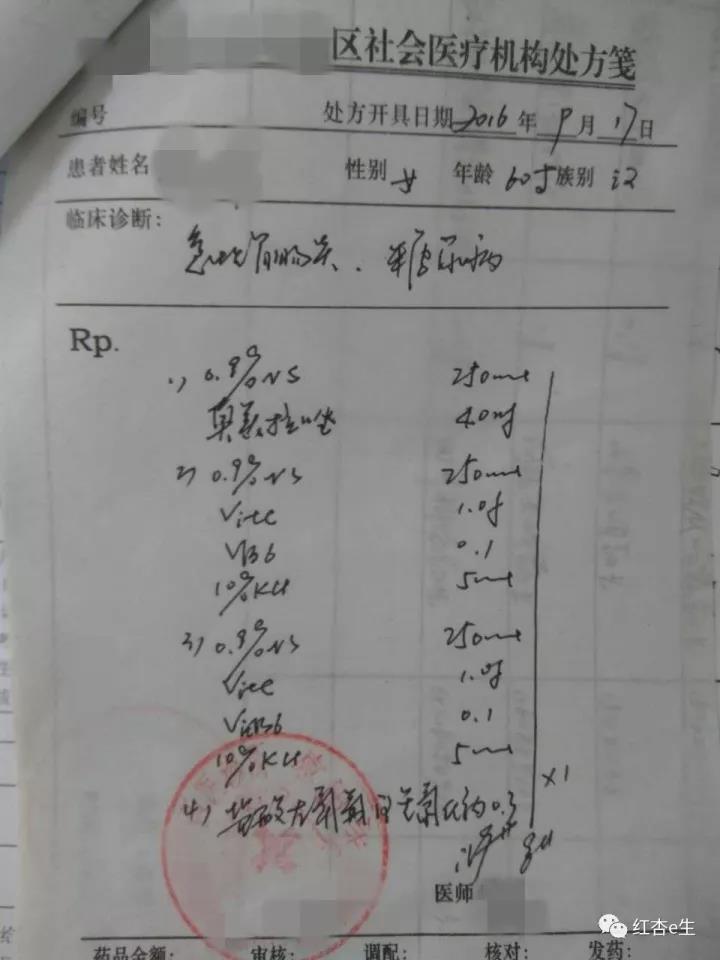 区社会医疗机构处方笺
编号 处方开具日期 2016 年 9 月 17 日
患者姓名 性别 女 年龄 60岁 族别 汉
临床诊断:
急性胃肠炎、糖尿病
Rp.
1) 0.9%NS 250ml
奥美拉唑 40mg
2) 0.9%NS 250ml
Vitc 1.0g
VB6 0.1
10%KCl 5ml
3) 0.9%NS 250ml
Vitc 1.0g
VitB6 0.1
10%KCl 5ml
4) 盐酸左氧氟沙星氯化钠 0.3
×1
医师
药品金额: 审核: 调配: 核对: 发药:
红杏e生